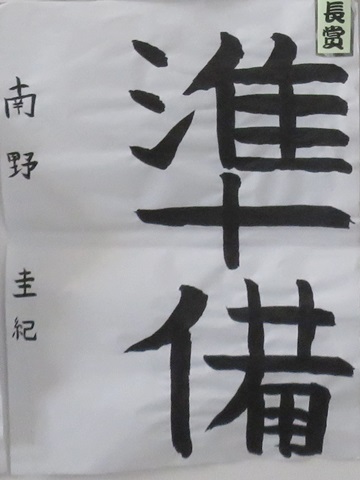 長賞
準備
南野 圭紀